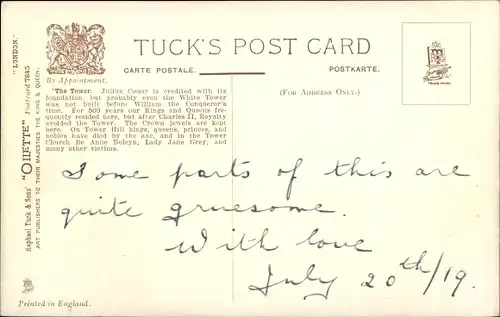 TUCK'S POST CARD
CARTE POSTALE.
POSTKARTE.
By Appointment.
(FOR ADDRESS ONLY.)
"The Tower. JULIUS CÆSAR is credited with its
foundation, but probably even the White Tower
was not built before William the Conqueror's
time. For 500 years our Kings and Queens fre-
quently resided here, but after Charles II, Royalty
avoided the Tower. The Crown jewels are kept
here. On Tower Hill kings, queens, princes, and
nobles have died by the axe, and in the Tower
Church lie Anne Boleyn, Lady Jane Grey, and
many other victims.
Raphael Tuck & Sons' "OILETTE" Postcard 7845 "LONDON."
ART PUBLISHERS TO THEIR MAJESTIES THE KING & QUEEN.
TRADE MARK.
Some parts of this are
quite gruesome.
With love
July 20th/19.
Printed in England.